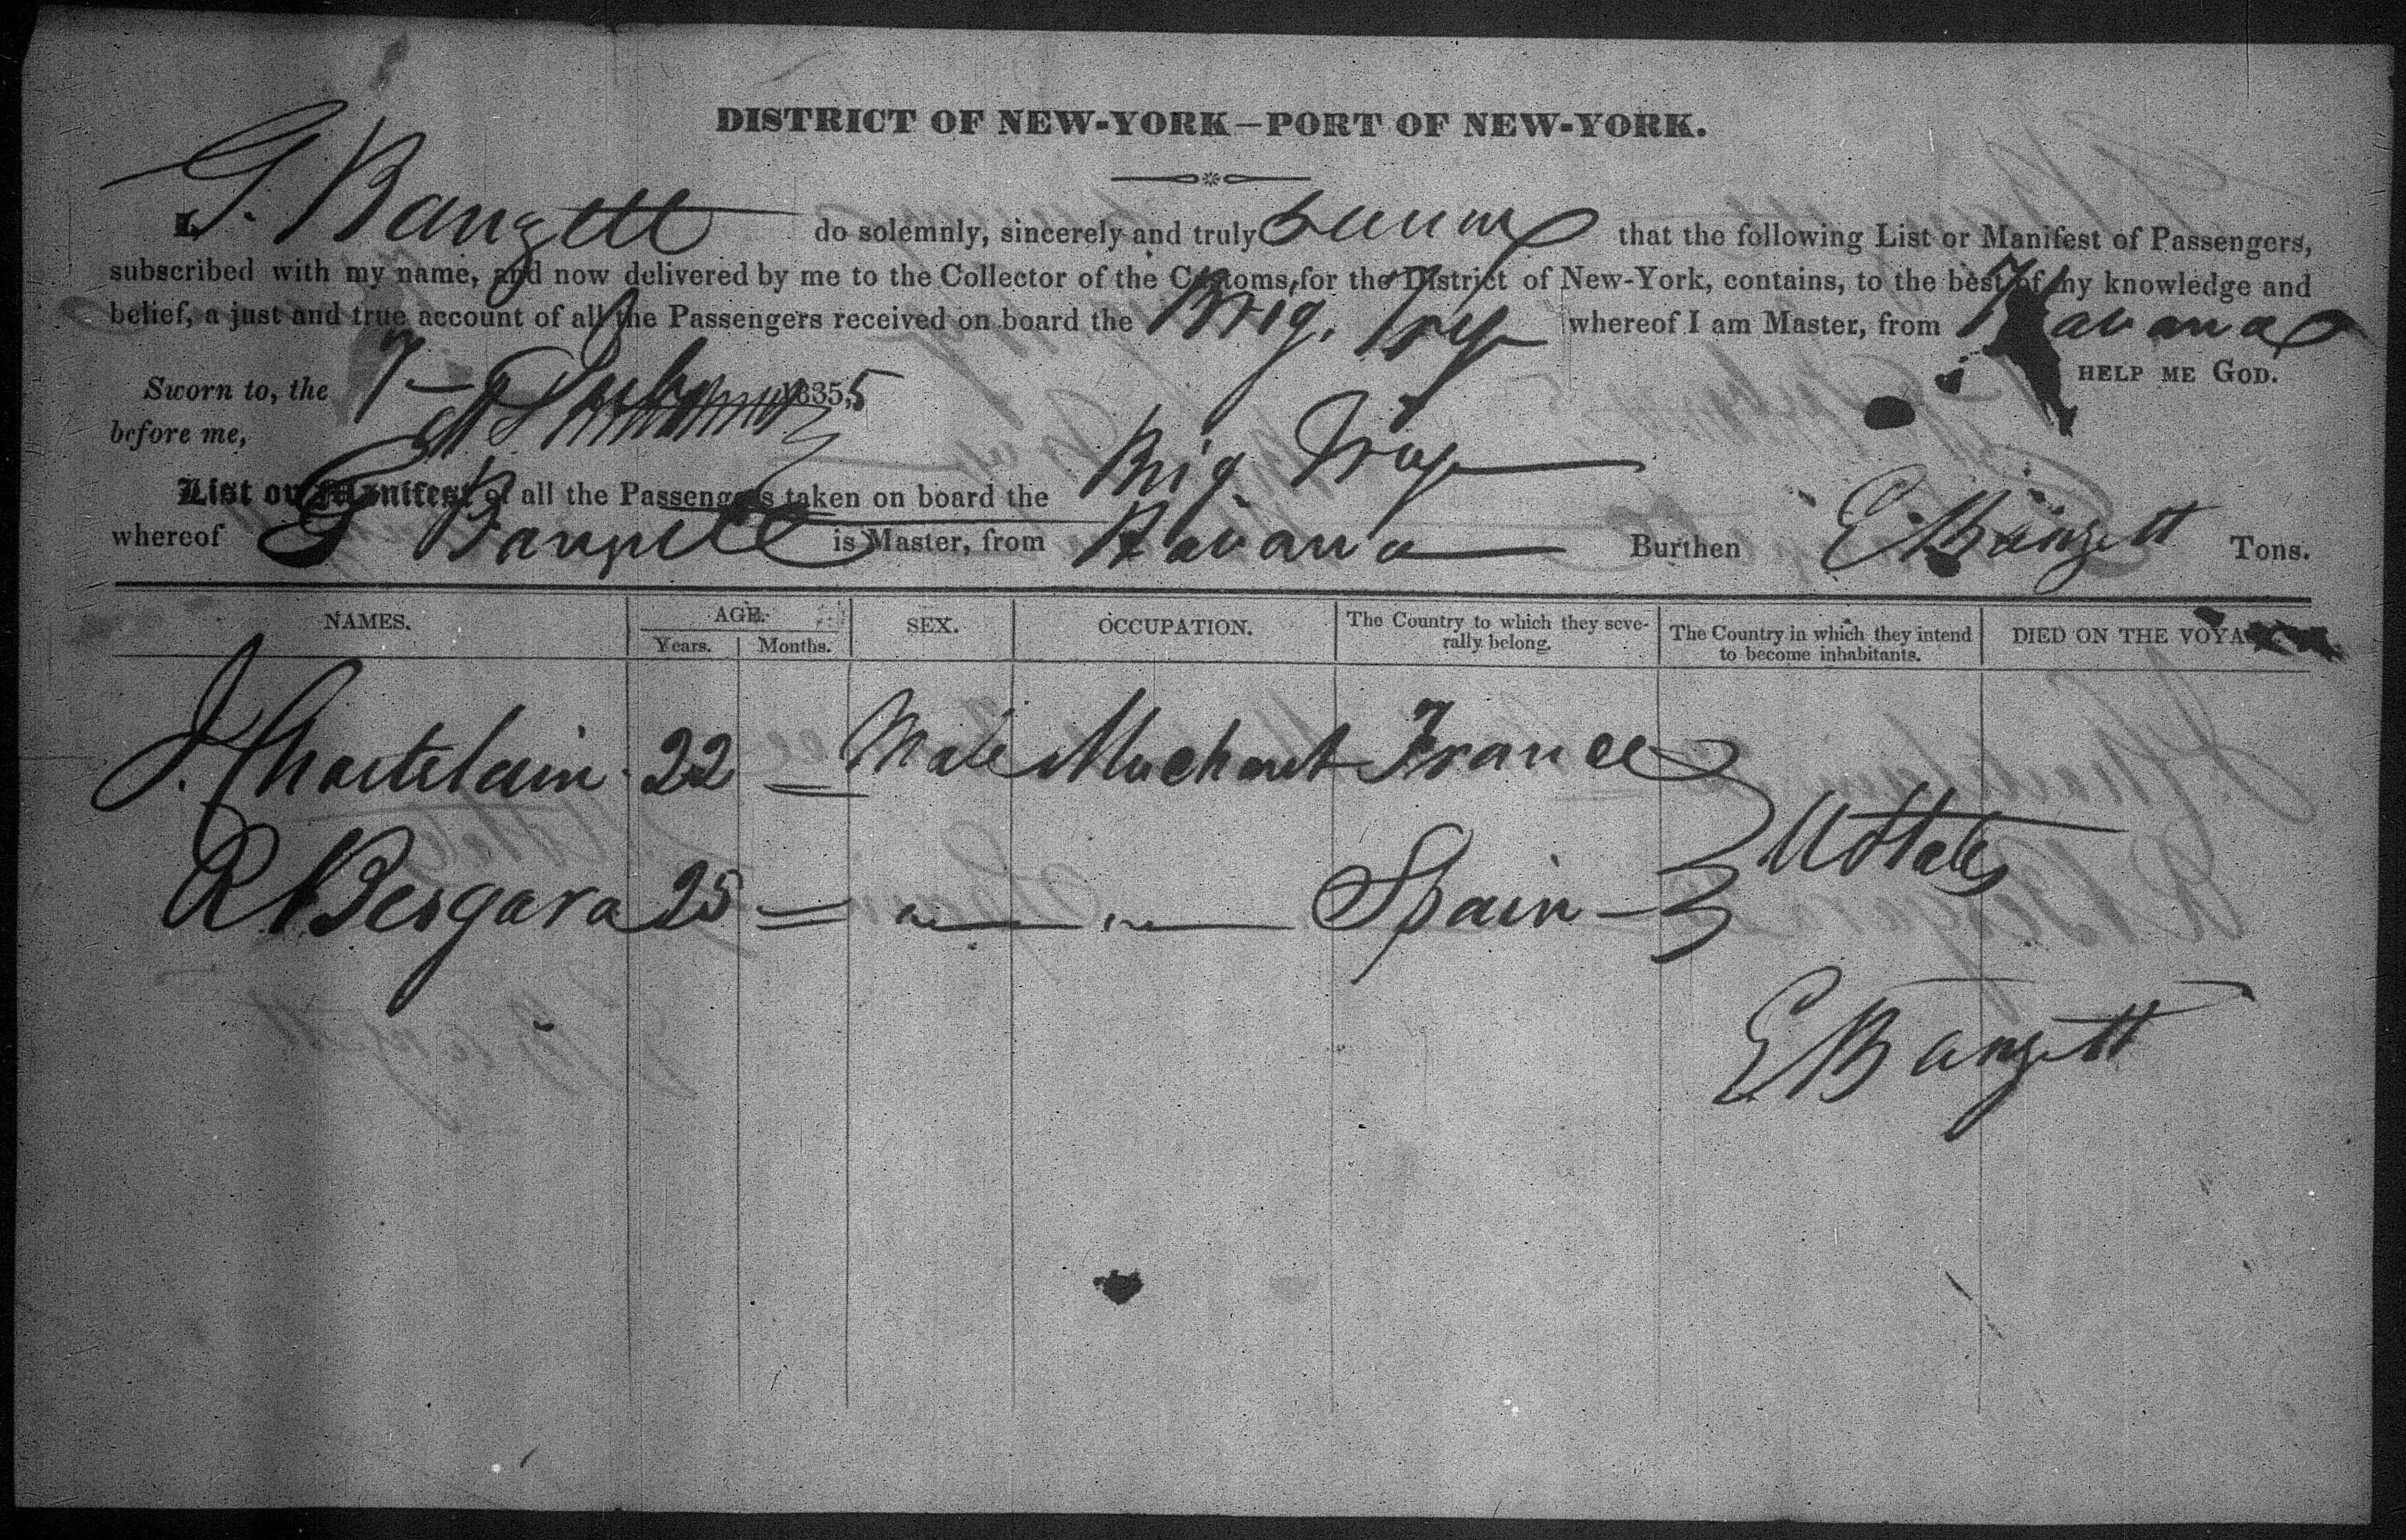 DISTRICT OF NEW-YORK—PORT OF NEW-YORK.
I, G. Bangett do solemnly, sincerely and truly that the following List or Manifest of Passengers,
subscribed with my name, and now delivered by me to the Collector of the Customs, for the District of New-York, contains, to the best of my knowledge and
belief, a just and true account of all the Passengers received on board the Brig. Troy whereof I am Master, from Havana
HELP ME GOD.
Sworn to, the 7 1835,5
before me,
List or Manifest of all the Passengers taken on board the Brig Troy
whereof G Bangett is Master, from Havana Burthen E Bangett Tons.
NAMES. AGE. SEX. OCCUPATION. The Country to which they seve- The Country in which they intend DIED ON THE VOYA
Years. Months. rally belong. to become inhabitants.
J. Chastelain 22 = Male Merchant France
U States
R Bergara 25 = Spain
E Bangett